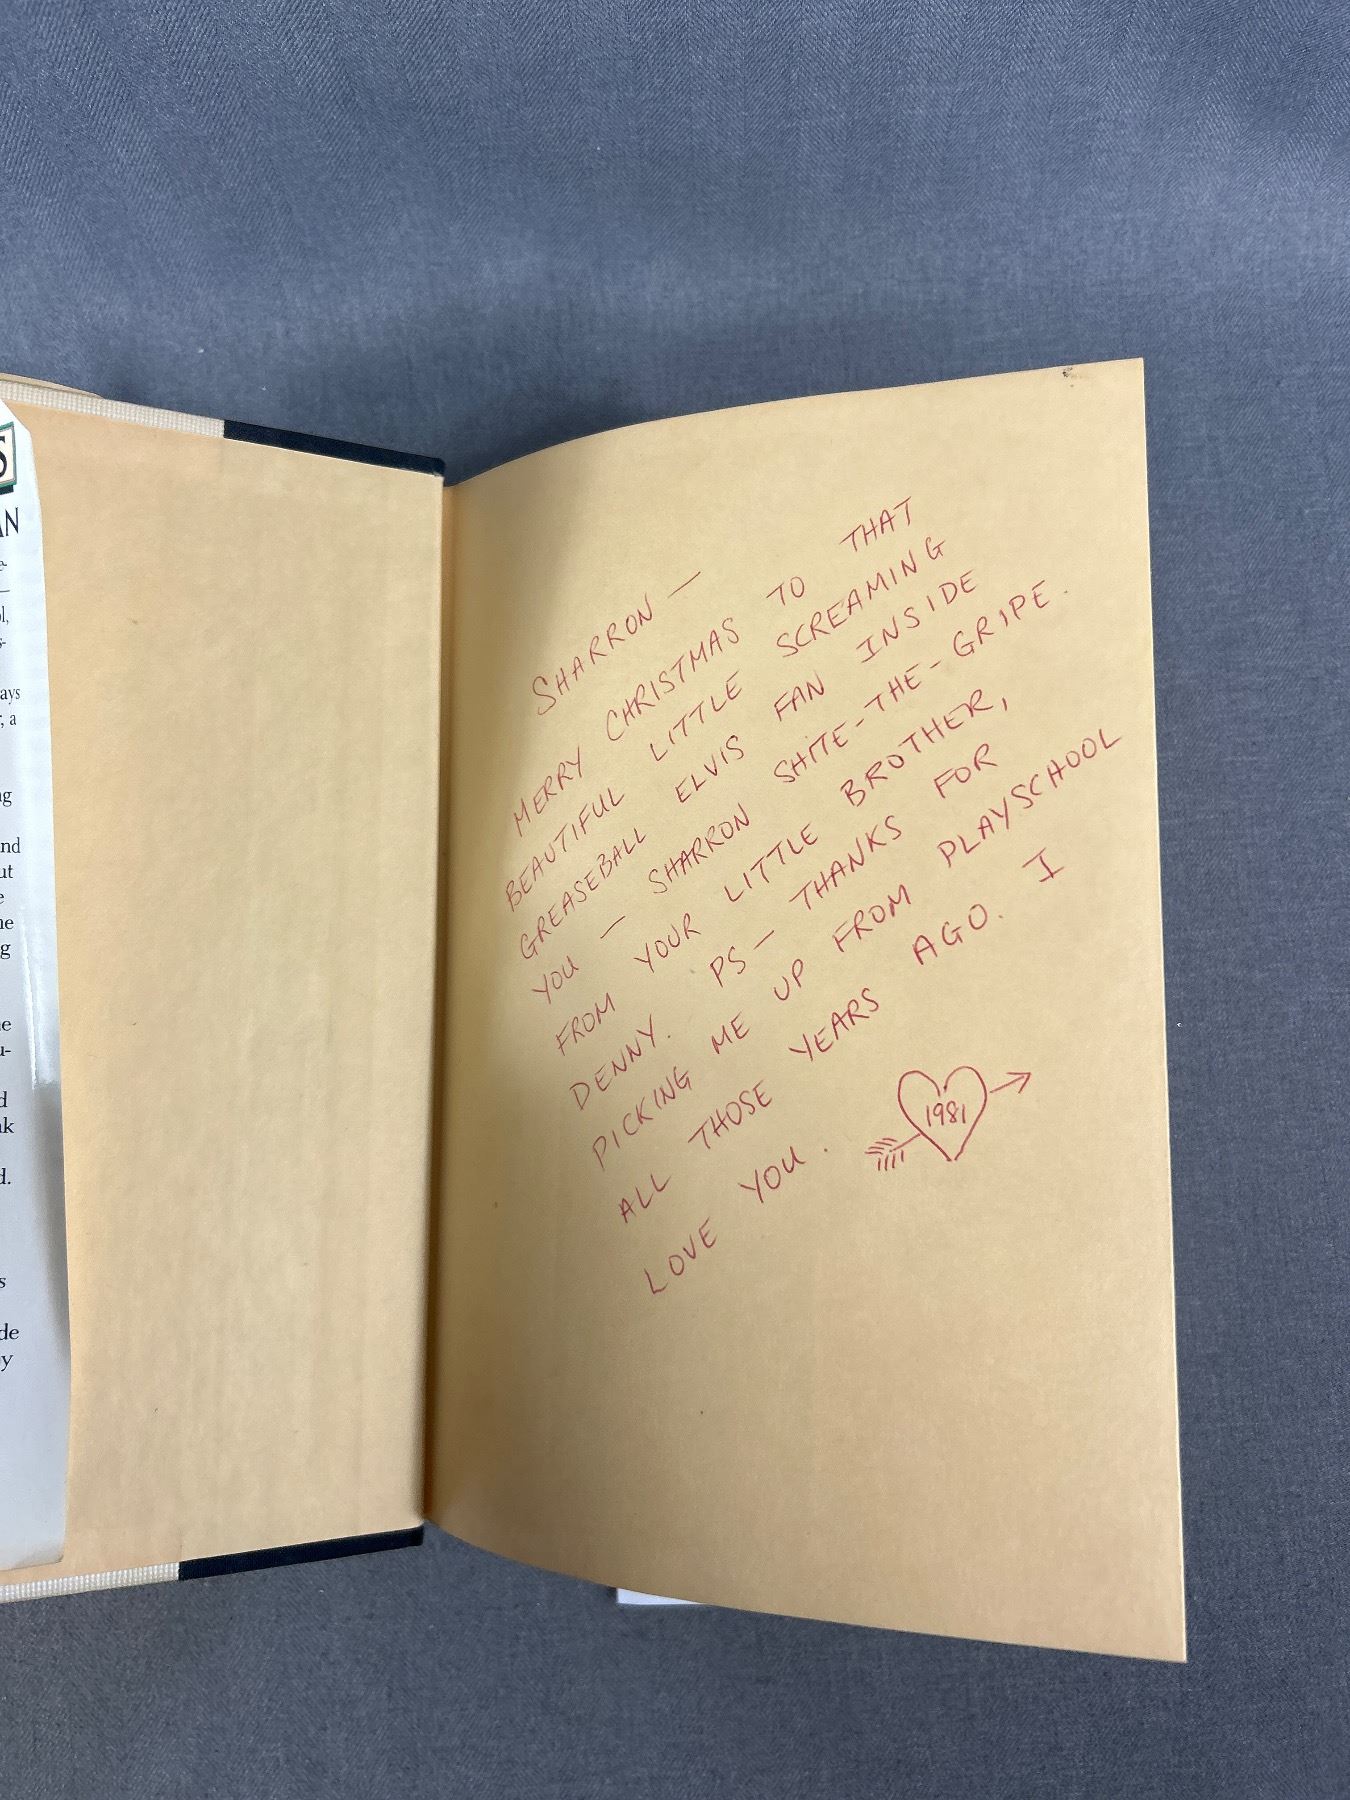 S
AN
e-
ol,
s-
ays
r, a
ng
and
out
e
he
ng
ne
u-
d
nk
d.
s
de
by
SHARRON —
MERRY CHRISTMAS TO THAT
BEAUTIFUL LITTLE SCREAMING
GREASEBALL ELVIS FAN INSIDE
YOU — SHARRON SHITE-THE-GRIPE.
FROM YOUR LITTLE BROTHER,
DENNY. PS— THANKS FOR
PICKING ME UP FROM PLAYSCHOOL
ALL THOSE YEARS AGO. I
LOVE YOU.
1981